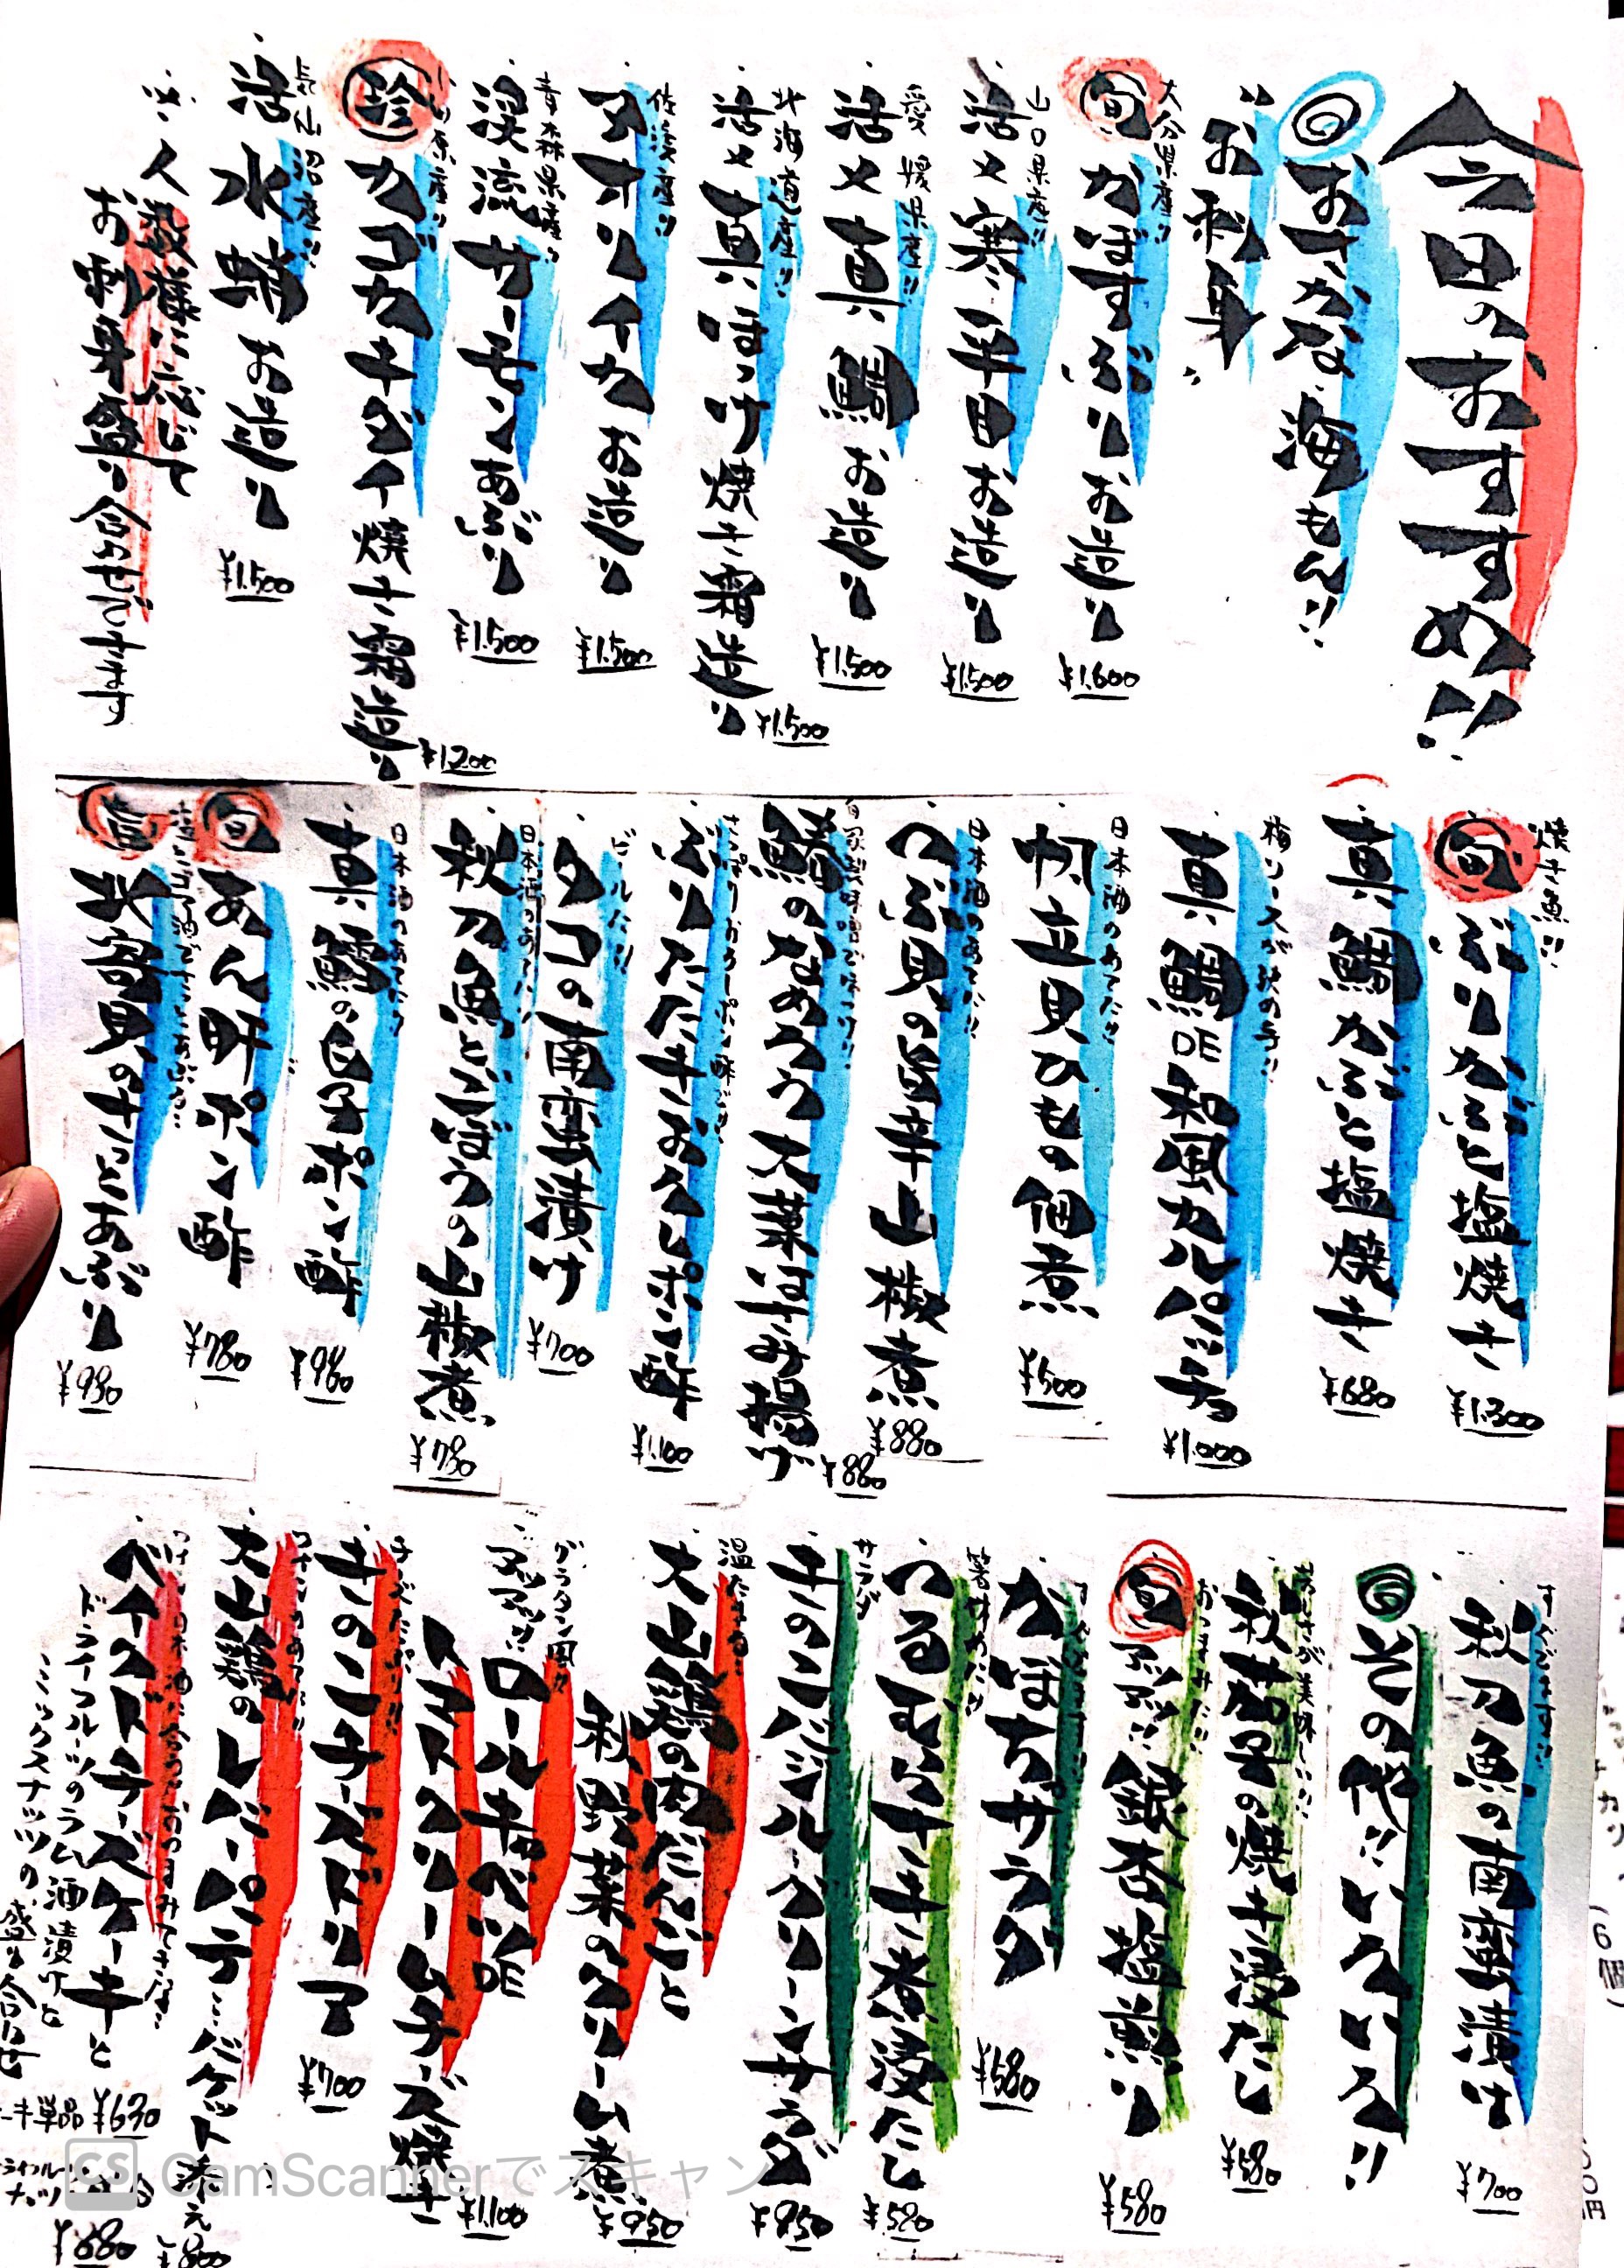 六日のおすすめ!!
◎おさかな 海もん!!
お刺身
大分県産!!
旬 かぼすぶりお造り
¥1.600
山口県産!!
活〆寒平目お造り
¥1.500
愛媛県産!!
活〆真鯛お造り
¥1.500
北海道産!!
活〆真ほっけ焼き霜造り
¥1.500
佐渡産!!
アオリイカお造り
¥1.500
青森県産!!
渓流サーモンあぶり
¥1.500
小田原産!!
珍 カゴカキダイ焼き霜造り
¥1.200
気仙沼産!!
活水蛸お造り
¥1.500
※人数様に応じて
お刺身盛り合わせできます
焼き魚!!
旬 ぶりカブト塩焼き
¥1.300
真鯛かぶと塩焼き
¥680
梅ソースが決め手!!
真鯛DE和風カルパッチョ
¥1.000
日本酒のあてに!!
帆立貝ひもの佃煮
¥500
日本酒のあてに!!
つぶ貝の旨辛山椒煮
¥880
自家製味噌で味つけ!!
鯵のなめろう大葉はさみ揚げ
¥880
さっぱりおろしポン酢で!!
ぶりたたきおろしポン酢
¥1.100
ビールに!!
タコの南蛮漬け
¥700
日本酒のあてに!!
秋刀魚とごぼうの山椒煮
¥780
日本酒のあてに!!
真鱈の白子ポン酢
¥980
旬 あん肝ポン酢
¥780
北寄貝のさっとあぶり
¥980
秋刀魚の南蛮漬け
¥700
◎その他!!いろいろ!!
秋茄子の焼き浸たし
¥580
おつまみに!!
旬 アツアツ!!銀杏塩煎り
¥580
かぼちゃサラダ
¥580
箸休めに!!
つるむらさき煮浸たし
¥580
サラダ
キノコバジルグリーンサラダ
¥850
温たまる!!
大山鶏の肉だんごと
秋野菜のクリーム煮
¥950
グラタン風
アツアツ!!
ロールキャベツDE
トマトクリームチーズ焼き
¥1.100
きのこチーズドリア
¥700
大山鶏のレバーパテ…バケット添え
¥800
ベイクドチーズケーキと
ドライフルーツのラム酒漬けと
ミックスナッツの盛り合わせ
ーキ単品 ¥630
¥680
(6個)
CS CamScannerでスキャン